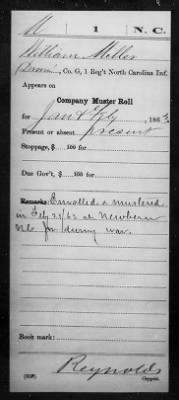 M 1 N.C.
William Miller
Private, Co. G, 1 Reg't North Carolina Inf.
Appears on
Company Muster Roll
for Jan & Feby, 1863.
Present or absent present
Stoppage, $ 100 for
Due Gov't, $ 100 for
Remarks: Enrolled & mustered
in Feby 23/63 at Newbern
N.C. for during war.
Book mark:
Reynolds
(358) Copyist.